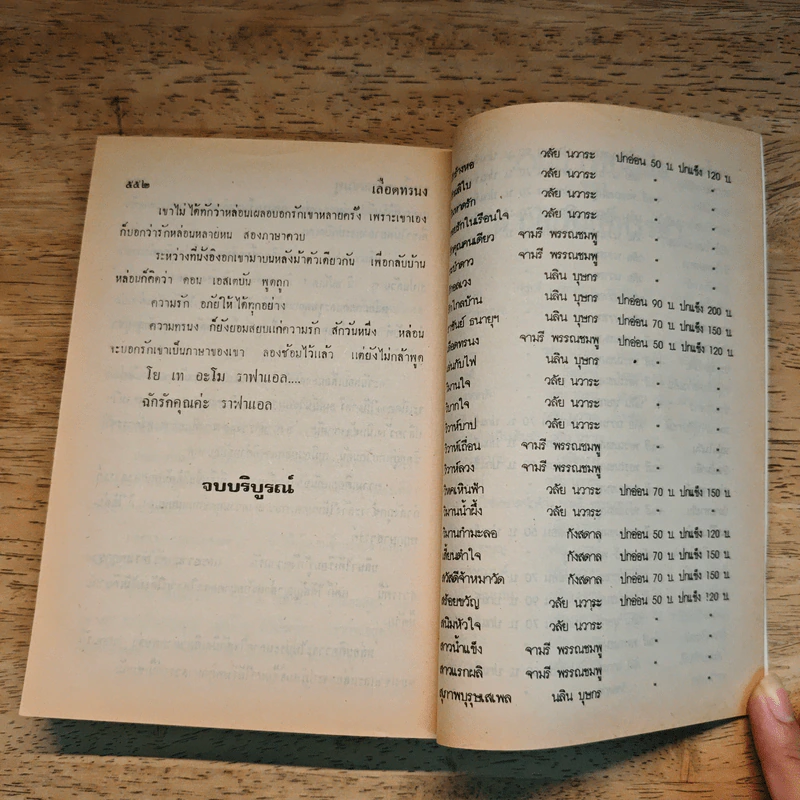 ๕๕๒ เลือดทรนง
เขาไม่ได้ทักว่าหล่อนเผลอบอกรักเขาหลายครั้ง เพราะเขาเอง
ก็บอกว่ารักหล่อนหลายหน สองภาษาควบ
ระหว่างที่นั่งอิงอกเขามาบนหลังม้าตัวเดียวกัน เพื่อกลับบ้าน
หล่อนก็คิดว่า ดอน เอสเตบัน พูดถูก
ความรัก อภัยให้ได้ทุกอย่าง
ความทรนง ก็ยังยอมสยบแก่ความรัก สักวันหนึ่ง หล่อน
จะบอกรักเขาเป็นภาษาของเขา ลองซ้อมไว้แล้ว แต่ยังไม่กล้าพูด
โย เท อะโม ราฟาแอล....
ฉันรักคุณค่ะ ราฟาแอล
จบบริบูรณ์
วลัย นวาระ ปกอ่อน 50 น. ปกแข็ง 120 น.
วลัย นวาระ " "
วลัย นวาระ " "
รักในเรือนใจ วลัย นวาระ " "
คุณคนเดียว จามรี พรรณชมพู " "
จามรี พรรณชมพู " "
นลิน บุษกร " "
ไกลบ้าน นลิน บุษกร ปกอ่อน 90 น. ปกแข็ง 200 น.
ธนายุฯ นลิน บุษกร ปกอ่อน 70 น. ปกแข็ง 150 น.
เลือดทรนง จามรี พรรณชมพู ปกอ่อน 50 น. ปกแข็ง 120 น.
เล่นกับไฟ นลิน บุษกร " "
วิมานใจ วลัย นวาระ " "
วลัย นวาระ " "
วิวาห์บาป วลัย นวาระ " "
วิวาห์เถื่อน จามรี พรรณชมพู " "
วิวาห์ลวง จามรี พรรณชมพู " "
วิเศษหินฟ้า วลัย นวาระ ปกอ่อน 70 น. ปกแข็ง 150 น.
วิมานน้ำผึ้ง วลัย นวาระ " "
วิมานกำมะลอ กังสดาล ปกอ่อน 50 น. ปกแข็ง 120 น.
เสี้ยนตำใจ กังสดาล ปกอ่อน 70 น. ปกแข็ง 150 น.
สวัสดีจ้าหมาวัด กังสดาล ปกอ่อน 70 น. ปกแข็ง 150 น.
สร้อยขวัญ วลัย นวาระ ปกอ่อน 50 น. ปกแข็ง 120 น.
สนิมหัวใจ วลัย นวาระ " "
สาวน้ำแข็ง จามรี พรรณชมพู " "
สาวแรกผลิ จามรี พรรณชมพู " "
สุภาพบุรุษเสเพล นลิน บุษกร " "